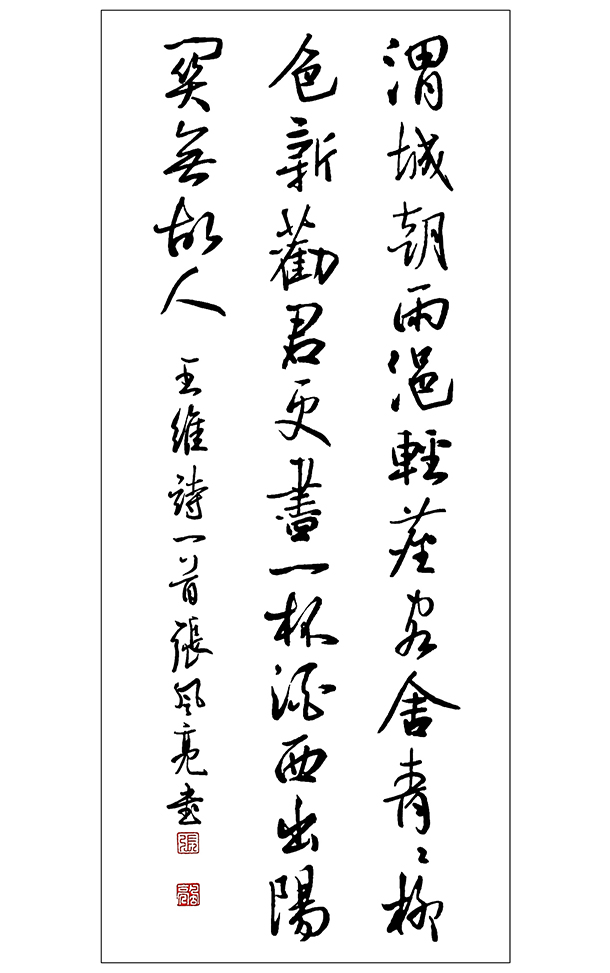 渭城朝雨浥輕塵客舍青〻柳
色新勸君更盡一杯酒西出陽
關無故人
王維詩一首張風亮書
張